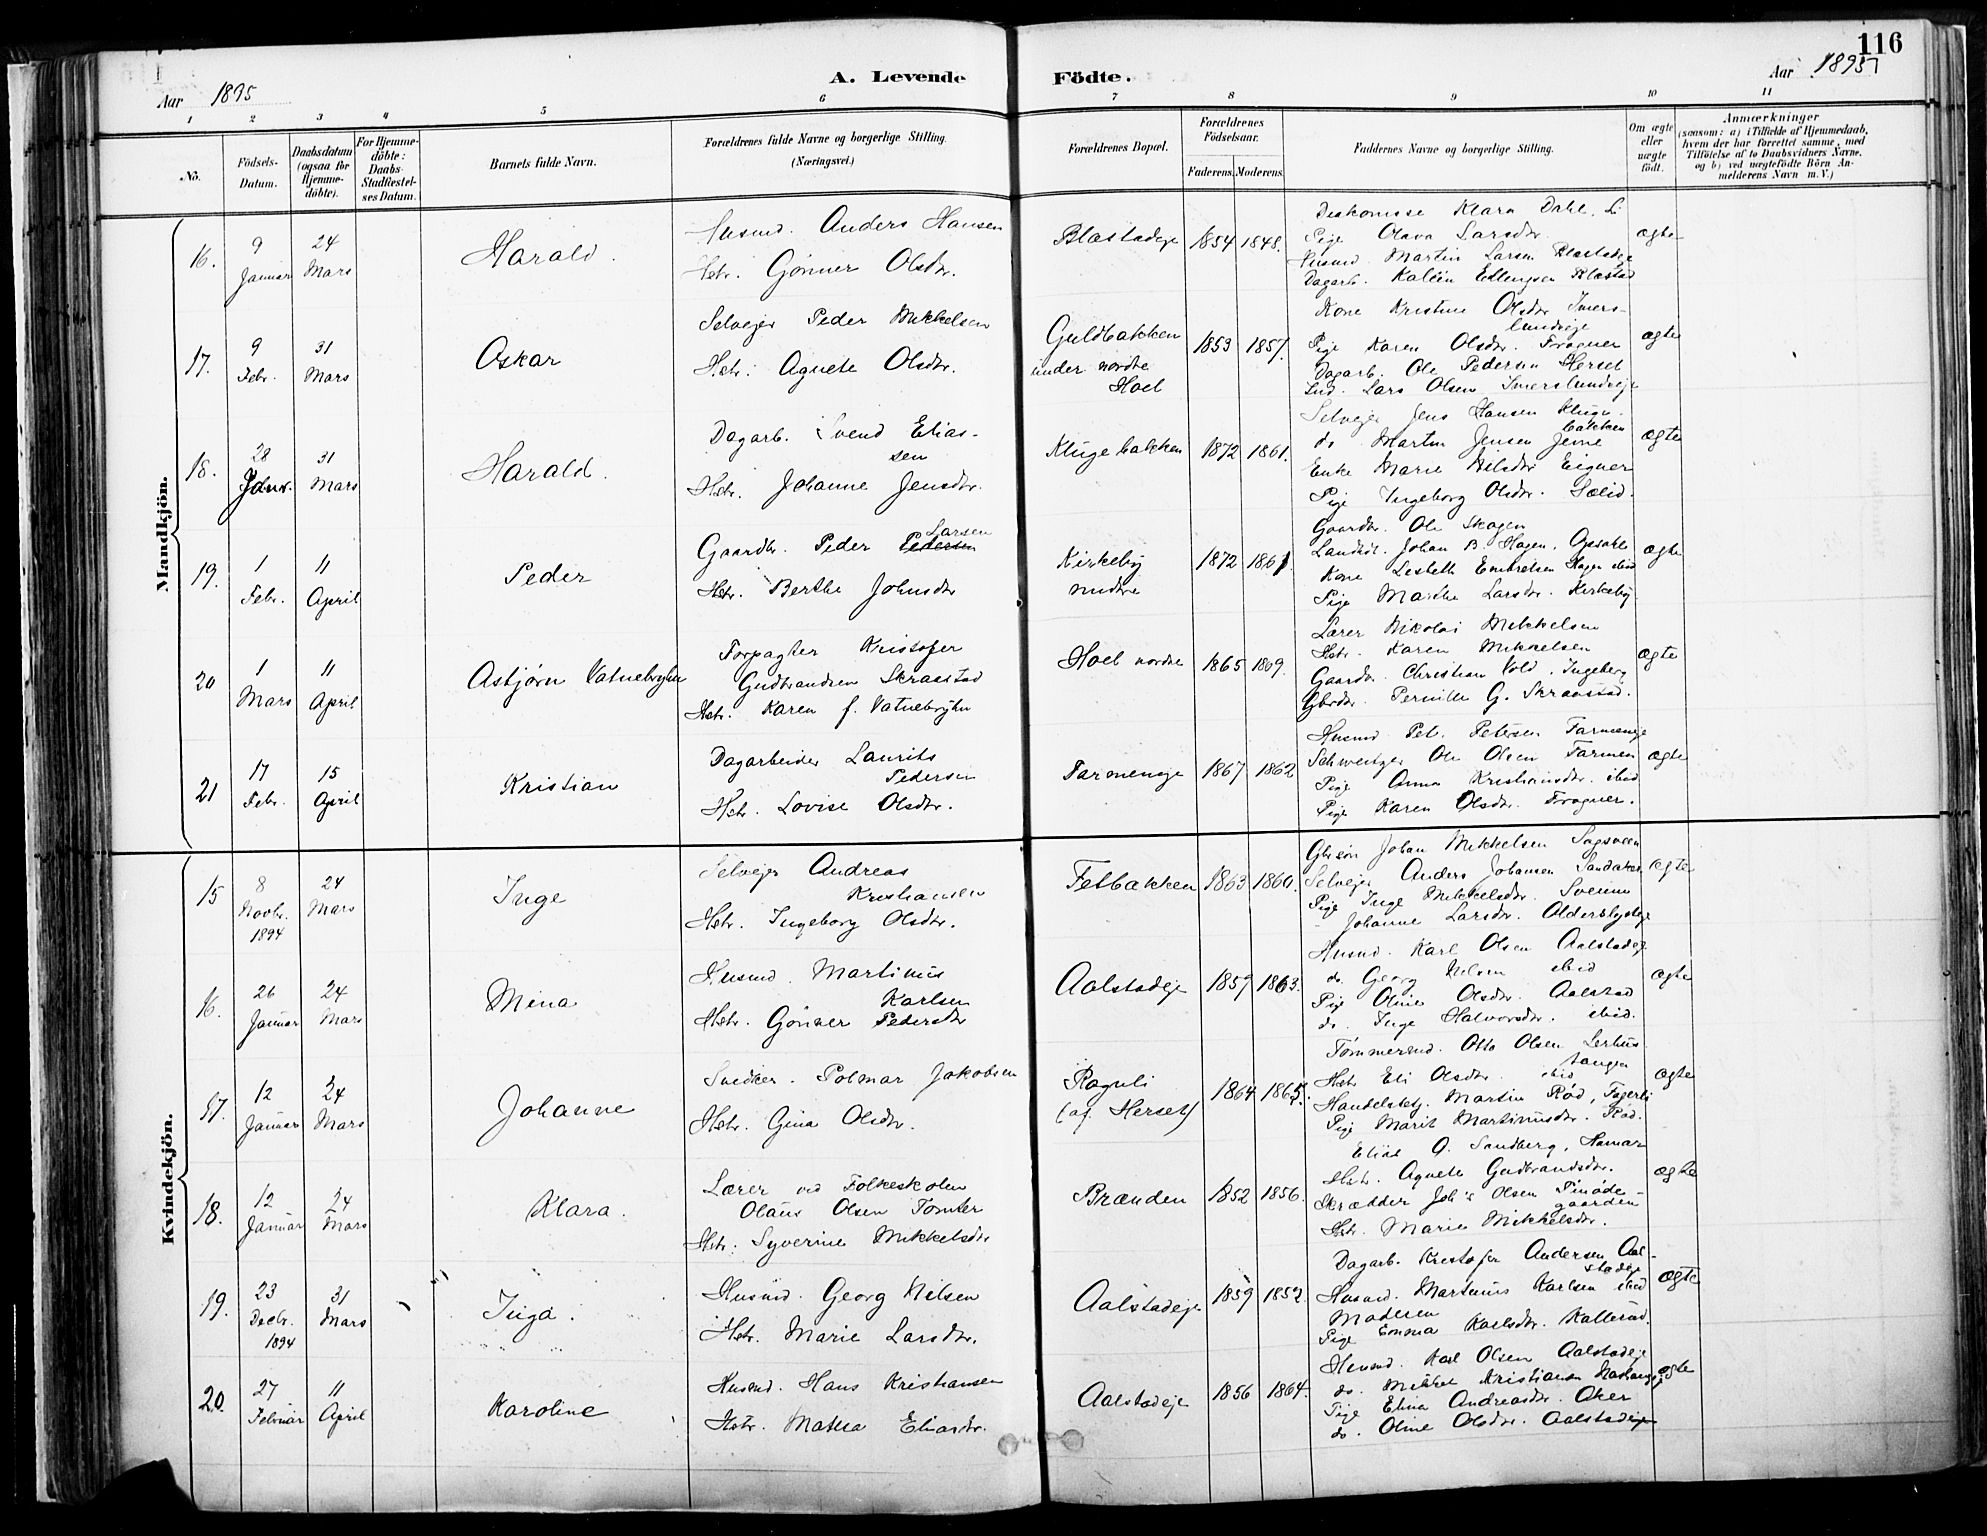 116
A. Levende Födte.
Aar 1895
Aar 1895
1 2 3 4 5 6 7 8 9 10 11
No.
Födsels-Datum.
Daabsdatum (ogsaa for Hjemme-döbte).
For Hjemme-döbte: Daabs-Stadfæstel-ses Datum.
Barnets fulde Navn.
Forældrenes fulde Navne og borgerlige Stilling. (Næringsvei.)
Forældrenes Bopæl.
Forældrenes Födselsaar.
Faderens. Moderens.
Faddernes Navne og borgerlige Stilling.
Om ægte eller uægte født.
Anmærkninger
(saasom: a) i Tilfælde af Hjemmedaab, hvem der har forrettet samme, med Tilföielse af to Daabsvidners Navne, og b) ved uægtefödte Börn An-melderens Navn m. V.)
Mandkjön.
16. 9 Januar 24 Mars Harald.
Husmd. Anders Hansen
Hstr. Gønner Olsdtr.
Blæstadeje 1854 1848.
Diakonisse Klara Dahl,
Pige Olava Larsdtr.
Husmd. Martin Larsen Blæstadeje
Dagarb. Edlingsen Blæstad
ægte
17. 9 Febr. 31 Mars Oskar
Selvejer Peder Mikkelsen
Hstr. Agnete Olsdtr.
Guldbakken
under nordre
Hoel
1853 1857.
Kone Kristine Olsdtr Imers-
lundeje
Pige Karen Olsdtr. Frogner
Dagarb. Ole Pedersen Herset
Ind. Lars Olsen Imerslundeje
ægte
18. 28 Janr. 31 Mars Harald.
Dagarb. Svend Elias-
sen
Hstr. Johanne Jensdtr.
Klugebakken 1872 1861.
Selvejer Jens Hansen Kluge-
bakken
do Martin Jensen
Enke Marie Nilsdtr Eigner
Pige Ingeborg Olsdtr. Sælid.
ægte
19. 1 Febr. 11 April Peder
Gaardbr. Peder Pedersen Larsen
Hstr. Berthe Johnsdtr
Kirkeby
nedre
1872 1861.
Gaardbr. Ole Skagen
Johan B. Hagen, Opsahl
Kone Lisbeth Embretsen Hagen ibid
Pige Marthe Larsdtr. Kirkeby
ægte
20 1 Mars 11 April Asbjørn Vatnebryhn
Forpagter Kristofer
Gudbrandsen Skraastad
Hstr. Karen f. Vatnebryhn
Hoel nordre 1865 1869.
Lærer Nikolai Mikkelsen
Hstr. Karen Mikkelsen
Gaardbr. Christian Vold, Ingeberg
Gbrdtr. Pernille G. Skraastad.
ægte
21 17 Febr. 15 April Kristian
Dagarbeider Laurits
Pedersen
Hstr. Lovise Olsdtr.
Farmeneje 1867 1862
Husmd Pet. Petersen Farmeneje
Schweitzer Ole Olsen Farmen
Pige Anna Kristiansdtr. ibid
Pige Karen Olsdtr. Frogner.
ægte
Kvindekjön.
15 8 Novbr. 1894 24 Mars Inge
Selvejer Andreas
Kristiansen
Hstr. Ingeborg Olsdtr.
Fetbakken 1863 1860.
Gbr.søn Johan Mikkelsen Sagsveen
Selvejer Anders Johansen
Pige Inge Mikkelsdtr. Sveum
" Johanne Larsdtr.
ægte
16. 26 Januar 24 Mars Mina
Husmd. Martinus
Karlsen
Hstr. Gønner Pedersdtr
Aalstadeje 1859 1863.
Husmd. Karl Olsen Aalstadeje
do. Georg Nilsen ibid
Pige Oline Olsdtr. Aalstad
do. Inge Halvorsdtr. ibid.
ægte
17. 12 Januar 24 Mars Johanne
Snedker. Polmar Jakobsen
Hstr. Gina Olsdtr.
Rognli
(af Herset)
1864 1865.
Tømmermd. Otto Olsen Lerhus-
tangen
Hstr Eli Olsdtr. ibid
Martin Rød, Fagerli
Pige Marit Martinusdtr. Rød.
ægte
18. 12 Januar 24 Mars Klara.
Lærer ved Folkeskolen
Olaus Olsen Tomter
Hstr. Syverine Mikkelsdtr
Brænden 1852 1856.
Elise G. Sandberg, Hamar
Hstr. Agnete Gudbrandsdtr.
Skrædder Joh's Olsen
gaarden
Hstr. Marie Mikkelsdtr.
ægte
19. 23 Decbr. 1894 31 Mars Inga.
Husmd. Georg Nilsen
Hstr. Marie Larsdtr.
Aalstadeje 1859 1852.
Dagarb. Kristofer Andersen Aal-
stadeje
Husmd. Martinus Karlsen ibid
Moderen
Pige Emma Karlsdtr. Kallerud.
ægte
20. 27 Februar 11 April Karoline
Husmd. Hans Kristiansen
Hstr. Mathea Eliasdtr.
Aalstadeje 1856 1864.
Husmd. Karl Olsen Aalstadeje
do. Mikkel Kristiansen
Pige Elina Andreasdtr. Aker
do. Oline Olsdtr. Aalstadeje
ægte